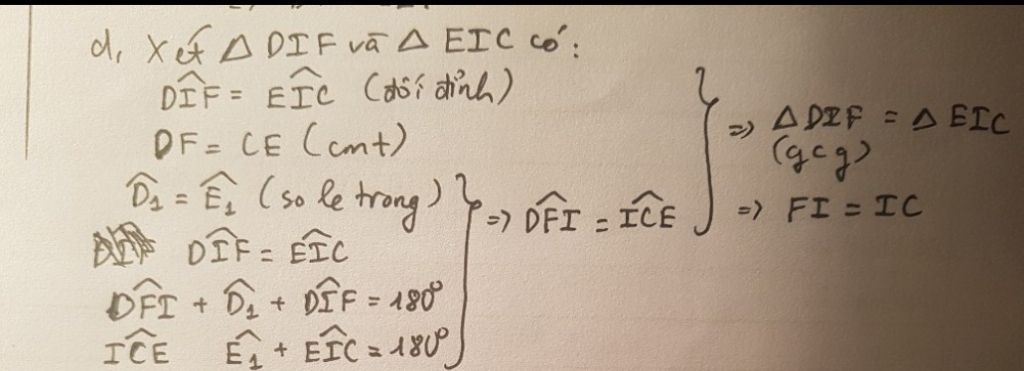 d, Xét △ DIF và △ EIC có:
DIF̂ = EIĈ (đối đỉnh)
DF = CE (cmt)
D̂₁ = Ê₁ (so le trong)
DIF̂ = EIĈ
DFÎ + D̂₁ + DIF̂ = 180⁰
ICÊ Ê₁ + EIĈ = 180⁰
=> DFÎ = ICÊ
=> △ DIF = △ EIC
(gcg)
=> FI = IC